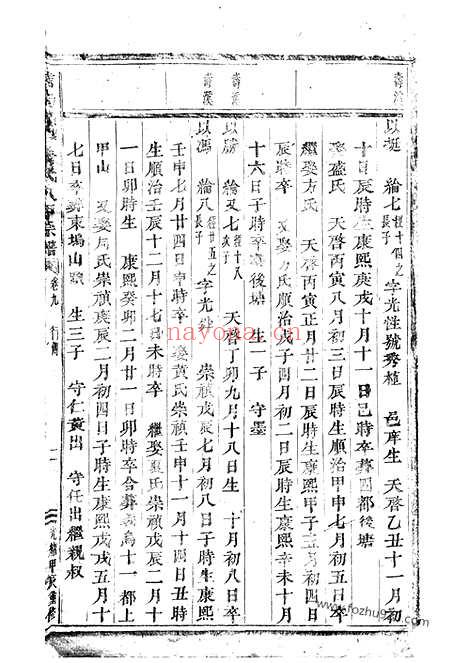 壽溪
以珽 綸七 種十個之長子 字光性號秀植 邑庠生 天啓乙丑十一月初
十日辰時生康熙庚戌十月十一日巳時卒葬四都後塘
娶盛氏 天啓丙寅八月初三日辰時生順治甲申七月初五日卒
繼娶方氏 天啓丙寅正月廿二日辰時生康熙甲子三月初四日
辰時卒 又娶方氏順治戊子四月初二日辰時生康熙辛未十月
十六日子時卒 後塘 生一子 守墨
壽溪
以勝 綸又七 次子 天啓丁卯九月十八日生 十月初八日卒
壽溪
以馮 綸八 種廿五之長子 字光 崇禎戊辰七月初八日子時生康熙
壬申七月廿四日申時卒 娶黃氏崇禎壬申十一月十四日丑時
生順治壬辰十二月十七日未時卒 繼娶 氏崇禎戊辰二月十
一日卯時生 康熙癸卯二月廿一日卯時卒合葬 十一都上
甲山 又娶 氏崇禎庚辰二月初四日子時生康熙戊戌五月十
七日卒葬東塢山 生三子 守仁黃出 守任出繼親叔
宗譜 卷九 行
光緒甲 重修
nayona.cn
www.fozhu920.com